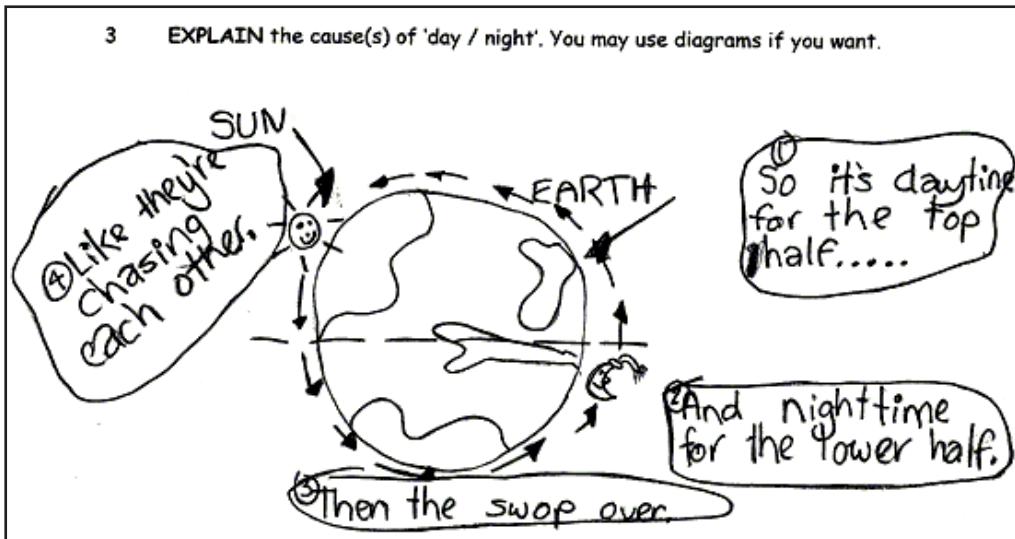 3 EXPLAIN the cause(s) of 'day / night'. You may use diagrams if you want.
SUN
EARTH
① So it's daytime
for the top
half.....
② And nighttime
for the lower half.
③ Then the swop over.
④ Like they're
chasing
each other.